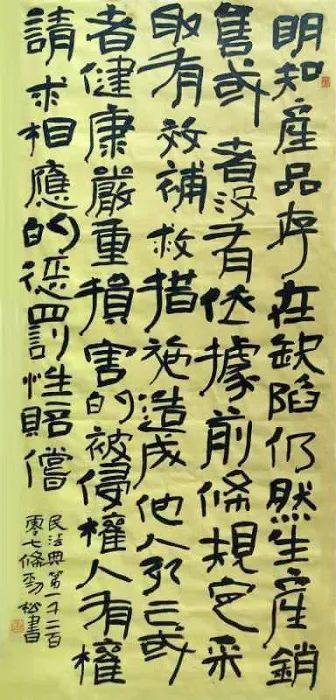 明知產品存在缺陷仍然生產銷
售或者沒有依據前條規定采
取有效補救措施造成他人死亡或
者健康嚴重損害的被侵權人有權
請求相應的懲罰性賠償
民法典第一千二百
零七條勁松書